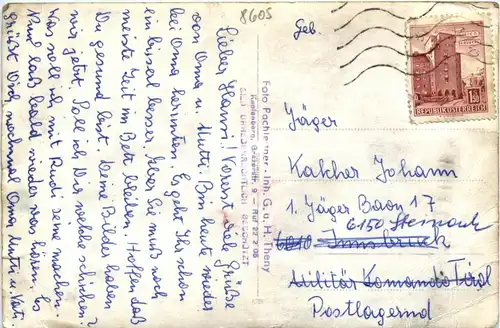 8605
Lieber Hansi! Vorerst viele Grüße
von Oma u. Mutti. Bin heute wieder
bei Oma herunten. Es geht Ihr schon
ein bisserl besser. Aber Sie muß noch
meiste Zeit im Bett bleiben. Hoffen daß
Du gesund bist. Deine Bilder haben
wir jetzt. Soll ich Dir welche schicken?
Was soll ich mit Rudi seine machen.
Und laß bald wieder was hören. Es
grüßt Dich nochmal Oma, Mutti u.
Geb.
REPUBLIK ÖSTERREICH
Jäger
Kalcher Johann
1. Jäger Baon 17
6150 Steinach
6010 Innsbruck
Militär Komando Tirol
Postlagernd
Inh. G. u. H. Thieny